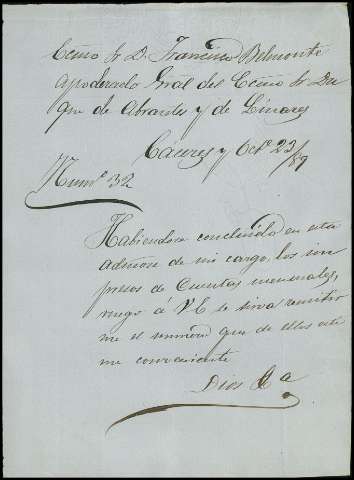 Ecmo Sr D. Francisco Belmonte
Apoderado Gral del Ecmo Sr Du
que de Abrantes y de Linares
Cáceres y Oct.e 23/87
Num.o 32
Habiendose concluido en esta
admon de mi cargo, los im
presos de Cuentas mensuales,
ruego á VE se sirva remitir
me el numero que de ellos este
me conveniente
Dios &a